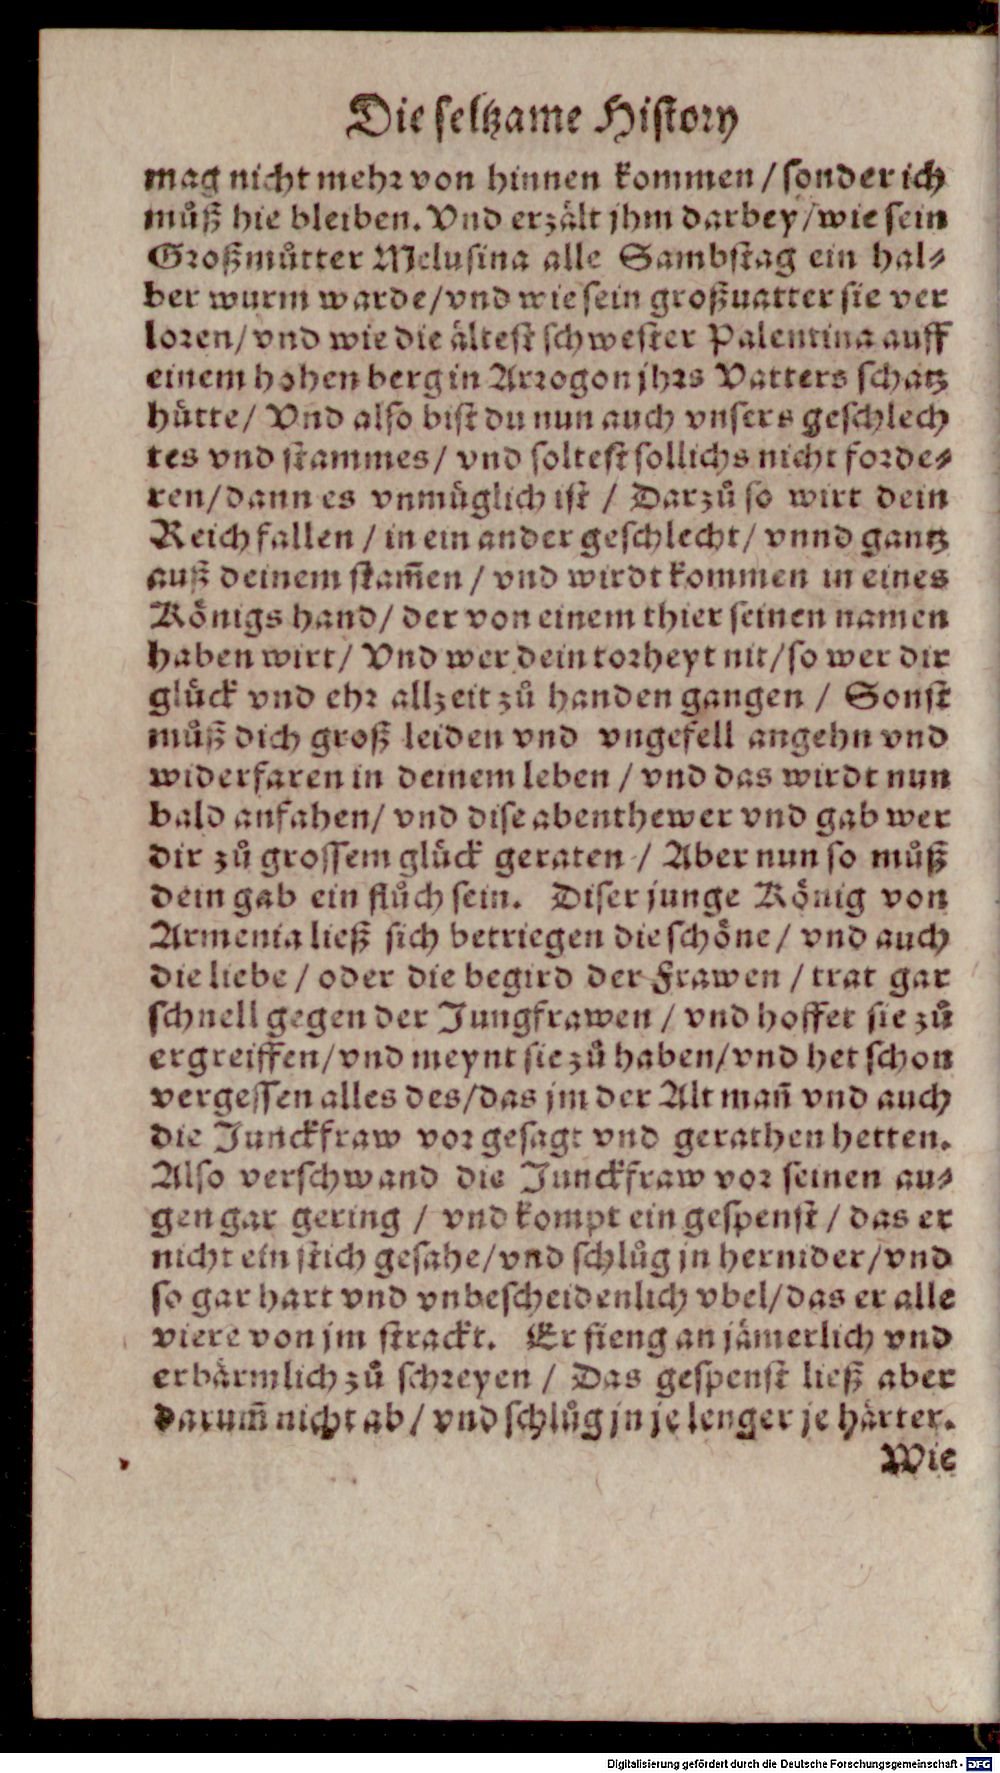 Die seltzame History
mag nicht mehr von hinnen kommen / sonder ich
muͦß hie bleiben. Vnd erzaͤlt jhm darbey / wie sein
Großmuͦtter Melusina alle Sambstag ein hal⸗
ber wurm warde / vnd wie sein großuatter sie ver
loren / vnd wie die aͤltest schwester Palentina auff
einem hohen berg in Arrogon jhrs Vatters schatz
huͤtte / Vnd also bist du nun auch vnsers geschlech
tes vnd stammes / vnd soltest sollichs nicht forde⸗
ren / dann es vnmuͤglich ist / Darzuͦ so wirt dein
Reich fallen / in ein ander geschlecht / vnnd gantz
auß deinem stam̃en / vnd wirdt kommen in eines
Koͤnigs hand / der von einem thier seinen namen
haben wirt / Vnd wer dein torheyt nit / so wer dir
gluͤck vnd ehr allzeit zuͦ handen gangen / Sonst
muͦß dich groß leiden vnd vngefell angehn vnd
widerfaren in deinem leben / vnd das wirdt nun
bald anfahen / vnd dise abenthewer vnd gab wer
dir zuͦ grossem gluͤck geraten / Aber nun so muͦß
dein gab ein fluͦch sein. Diser junge Koͤnig von
Armenia ließ sich betriegen die schoͤne / vnd auch
die liebe / oder die begird der Frawen / trat gar
schnell gegen der Jungfrawen / vnd hoffet sie zuͦ
ergreiffen / vnd meynt sie zuͦ haben / vnd het schon
vergessen alles des / das jm der Alt man̄ vnd auch
die Junckfraw vor gesagt vnd gerathen hetten.
Also verschwand die Junckfraw vor seinen au⸗
gen gar gering / vnd kompt ein gespenst / das er
nicht ein stich gesahe / vnd schluͦg jn hernider / vnd
so gar hart vnd vnbescheidenlich vbel / das er alle
viere von jm strackt. Er fieng an jaͤmerlich vnd
erbaͤrmlich zuͦ schreyen / Das gespenst ließ aber
darum̃ nicht ab / vnd schluͦg jn je lenger je haͤrter.
Wie
Digitalisierung gefördert durch die Deutsche Forschungsgemeinschaft - DFG